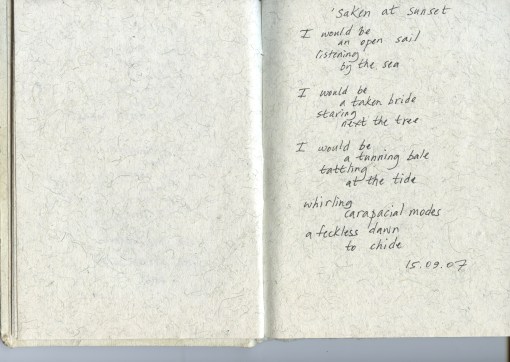 'saken at sunset
I would be
an open sail
listening
by the sea
I would be
a taken bride
staring
next the tree
I would be
a tunning bale
tattling
at the tide
whirling
carapacial modes
a feckless dawn
to chide
15.09.07